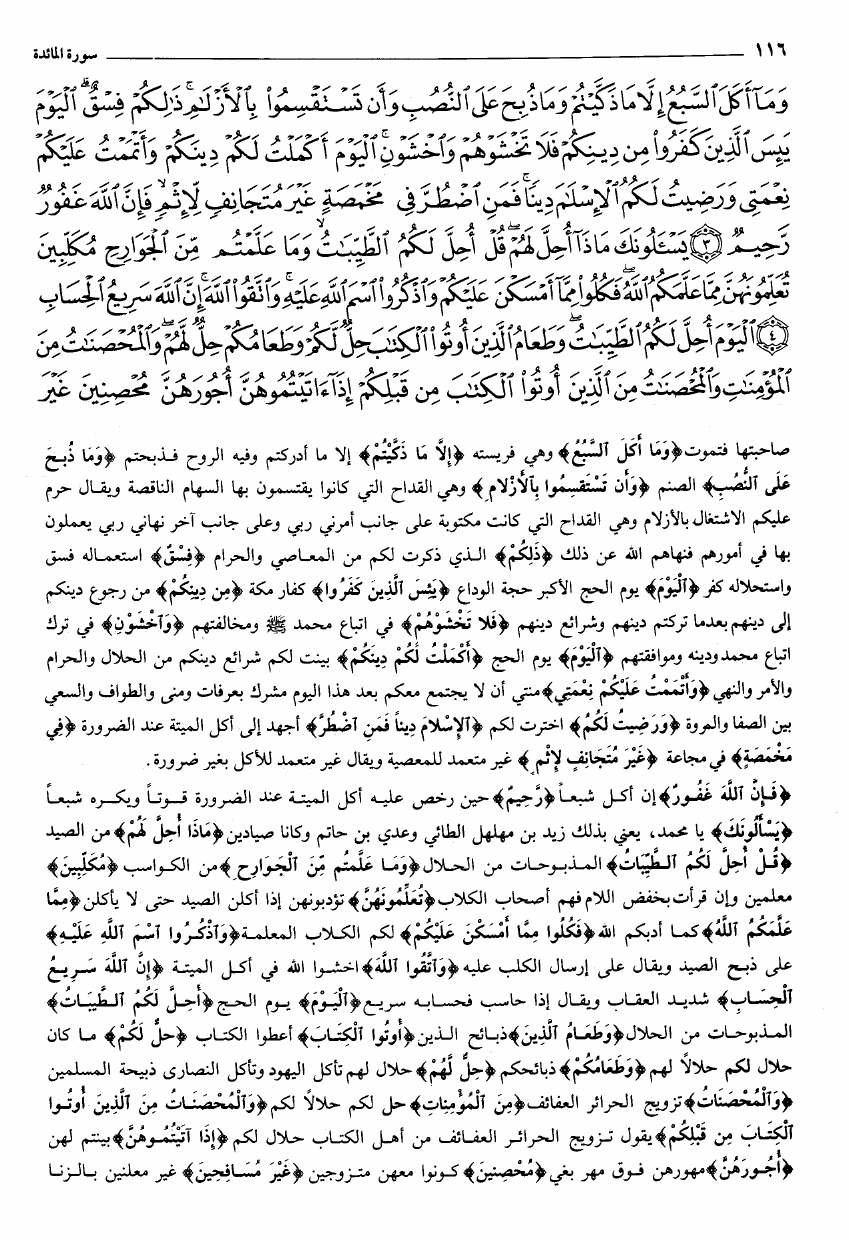 ١١٦ سورة المائدة
وَمَآ أَكَلَ ٱلسَّبُعُ إِلَّا مَا ذَكَّيْتُمْ وَمَا ذُبِحَ عَلَى ٱلنُّصُبِ وَأَن تَسْتَقْسِمُوا۟ بِٱلْأَزْلَٰمِ ۚ ذَٰلِكُمْ فِسْقٌ ۗ ٱلْيَوْمَ
يَئِسَ ٱلَّذِينَ كَفَرُوا۟ مِن دِينِكُمْ فَلَا تَخْشَوْهُمْ وَٱخْشَوْنِ ۚ ٱلْيَوْمَ أَكْمَلْتُ لَكُمْ دِينَكُمْ وَأَتْمَمْتُ عَلَيْكُمْ
نِعْمَتِى وَرَضِيتُ لَكُمُ ٱلْإِسْلَٰمَ دِينًا ۚ فَمَنِ ٱضْطُرَّ فِى مَخْمَصَةٍ غَيْرَ مُتَجَانِفٍ لِّإِثْمٍ ۙ فَإِنَّ ٱللَّهَ غَفُورٌ
رَّحِيمٌ ﴿٣﴾ يَسْـَٔلُونَكَ مَاذَآ أُحِلَّ لَهُمْ ۖ قُلْ أُحِلَّ لَكُمُ ٱلطَّيِّبَٰتُ ۙ وَمَا عَلَّمْتُم مِّنَ ٱلْجَوَارِحِ مُكَلِّبِينَ
تُعَلِّمُونَهُنَّ مِمَّا عَلَّمَكُمُ ٱللَّهُ ۖ فَكُلُوا۟ مِمَّآ أَمْسَكْنَ عَلَيْكُمْ وَٱذْكُرُوا۟ ٱسْمَ ٱللَّهِ عَلَيْهِ ۖ وَٱتَّقُوا۟ ٱللَّهَ ۚ إِنَّ ٱللَّهَ سَرِيعُ ٱلْحِسَابِ
﴿٤﴾ ٱلْيَوْمَ أُحِلَّ لَكُمُ ٱلطَّيِّبَٰتُ ۖ وَطَعَامُ ٱلَّذِينَ أُوتُوا۟ ٱلْكِتَٰبَ حِلٌّ لَّكُمْ وَطَعَامُكُمْ حِلٌّ لَّهُمْ ۖ وَٱلْمُحْصَنَٰتُ مِنَ
ٱلْمُؤْمِنَٰتِ وَٱلْمُحْصَنَٰتُ مِنَ ٱلَّذِينَ أُوتُوا۟ ٱلْكِتَٰبَ مِن قَبْلِكُمْ إِذَآ ءَاتَيْتُمُوهُنَّ أُجُورَهُنَّ مُحْصِنِينَ غَيْرَ
صاحبتها فتموت ﴿وَمَا أَكَلَ ٱلسَّبُعُ﴾ وهي فريسته ﴿إِلَّا مَا ذَكَّيْتُمْ﴾ إلا ما أدركتم وفيه الروح فذبحتم ﴿وَمَا ذُبِحَ
عَلَى ٱلنُّصُبِ﴾ الصنم ﴿وَأَن تَسْتَقْسِمُوا بِٱلْأَزْلَامِ﴾ وهي القداح التي كانوا يقتسمون بها السهام الناقصة ويقال حرم
عليكم الاشتغال بالأزلام وهي القداح التي كانت مكتوبة على جانب أمرني ربي وعلى جانب آخر نهاني ربي يعملون
بها في أمورهم فنهاهم الله عن ذلك ﴿ذَلِكُمْ﴾ الذي ذكرت لكم من المعاصي والحرام ﴿فِسْقٌ﴾ استعماله فسق
واستحلاله كفر ﴿ٱلْيَوْمَ﴾ يوم الحج الأكبر حجة الوداع ﴿يَئِسَ ٱلَّذِينَ كَفَرُوا﴾ كفار مكة ﴿مِن دِينِكُمْ﴾ من رجوع دينكم
إلى دينهم بعدما تركتم دينهم وشرائع دينهم ﴿فَلَا تَخْشَوْهُمْ﴾ في اتباع محمد ﷺ ومخالفتهم ﴿وَٱخْشَوْنِ﴾ في ترك
اتباع محمد ودينه وموافقتهم ﴿ٱلْيَوْمَ﴾ يوم الحج ﴿أَكْمَلْتُ لَكُمْ دِينَكُمْ﴾ بينت لكم شرائع دينكم من الحلال والحرام
والأمر والنهي ﴿وَأَتْمَمْتُ عَلَيْكُمْ نِعْمَتِي﴾ منتي أن لا يجتمع معكم بعد هذا اليوم مشرك بعرفات ومنى والطواف والسعي
بين الصفا والمروة ﴿وَرَضِيتُ لَكُمُ﴾ اخترت لكم ﴿ٱلْإِسْلَامَ دِيناً فَمَنِ ٱضْطُرَّ﴾ أجهد إلى أكل الميتة عند الضرورة ﴿فِي
مَخْمَصَةٍ﴾ في مجاعة ﴿غَيْرَ مُتَجَانِفٍ لِإِثْمٍ﴾ غير متعمد للمعصية ويقال غير متعمد للأكل بغير ضرورة.
﴿فَإِنَّ ٱللَّهَ غَفُورٌ﴾ إن أكل شبعاً ﴿رَّحِيمٌ﴾ حين رخص عليه أكل الميتة عند الضرورة قوتاً ويكره شبعاً
﴿يَسْأَلُونَكَ﴾ يا محمد، يعني بذلك زيد بن مهلهل الطائي وعدي بن حاتم وكانا صيادين ﴿مَاذَا أُحِلَّ لَهُمْ﴾ من الصيد
﴿قُلْ أُحِلَّ لَكُمُ ٱلطَّيِّبَاتُ﴾ المذبوحات من الحلال ﴿وَمَا عَلَّمْتُم مِّنَ ٱلْجَوَارِحِ﴾ من الكواسب ﴿مُكَلِّبِينَ﴾
معلمين وإن قرأت بخفض اللام فهم أصحاب الكلاب ﴿تُعَلِّمُونَهُنَّ﴾ تؤدبونهن إذا أكلن الصيد حتى لا يأكلن ﴿مِمَّا
عَلَّمَكُمُ ٱللَّهُ﴾ كما أدبكم الله ﴿فَكُلُوا مِمَّا أَمْسَكْنَ عَلَيْكُمْ﴾ لكم الكلاب المعلمة ﴿وَٱذْكُرُوا ٱسْمَ ٱللَّهِ عَلَيْهِ﴾
على ذبح الصيد ويقال على إرسال الكلب عليه ﴿وَٱتَّقُوا ٱللَّهَ﴾ اخشوا الله في أكل الميتة ﴿إِنَّ ٱللَّهَ سَرِيعُ
ٱلْحِسَابِ﴾ شديد العقاب ويقال إذا حاسب فحسابه سريع ﴿ٱلْيَوْمَ﴾ يوم الحج ﴿أُحِلَّ لَكُمُ ٱلطَّيِّبَاتُ﴾
المذبوحات من الحلال ﴿وَطَعَامُ ٱلَّذِينَ﴾ ذبائح الذين ﴿أُوتُوا ٱلْكِتَابَ﴾ أعطوا الكتاب ﴿حِلٌّ لَكُمْ﴾ ما كان
حلال لكم حلالاً لهم ﴿وَطَعَامُكُمْ﴾ ذبائحكم ﴿حِلٌّ لَّهُمْ﴾ حلال لهم تأكل اليهود وتأكل النصارى ذبيحة المسلمين
﴿وَٱلْمُحْصَنَاتُ﴾ تزويج الحرائر العفائف ﴿مِنَ ٱلْمُؤْمِنَاتِ﴾ حل لكم حلالاً لكم ﴿وَٱلْمُحْصَنَاتُ مِنَ ٱلَّذِينَ أُوتُوا
ٱلْكِتَابَ مِن قَبْلِكُمْ﴾ يقول تزويج الحرائر العفائف من أهل الكتاب حلال لكم ﴿إِذَا آتَيْتُمُوهُنَّ﴾ بينتم لهن
﴿أُجُورَهُنَّ﴾ مهورهن فوق مهر بغي ﴿مُحْصِنِينَ﴾ كونوا معهن متزوجين ﴿غَيْرَ مُسَافِحِينَ﴾ غير معلنين بالزنا